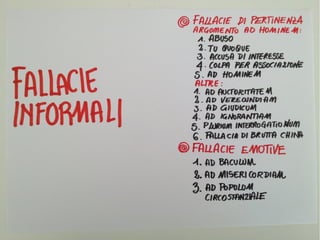 FALLACIE
INFORMALI
@ FALLACIE DI PERTINENZA
ARGOMENTO AD HOMINEM:
1. ABUSO
2. TU QUOQUE
3. ACCUSA DI INTERESSE
4. COLPA PER ASSOCIAZIONE
5. AD HOMINEM
ALTRE:
1. AD AUCTORITATEM
2. AD VERECUNDIAM
3. AD GIUDICUM
4. AD IGNORANTIAM
5. PLURIUM INTERROGATIONUM
6. FALLACIA DI BRUTTA CHINA
@ FALLACIE EMOTIVE
1. AD BACULUM
2. AD MISERICORDIAM
3. AD POPOLUM
CIRCOSTANZIALE